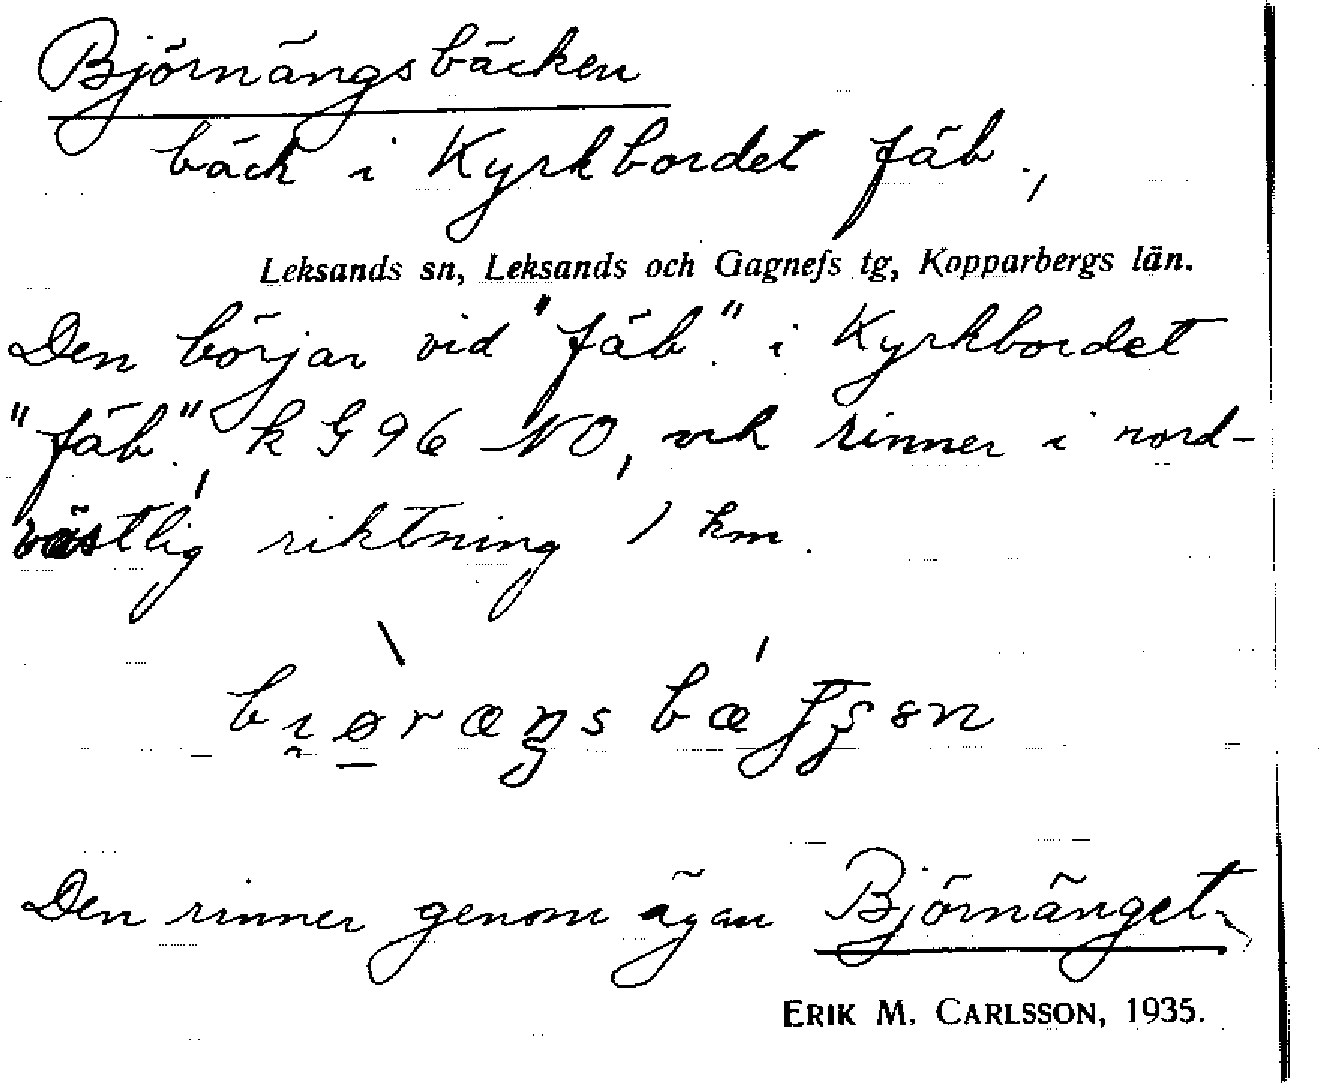 Björnängsbäcken
bäck i Kyrkbordet fäb.,
Leksands sn, Leksands och Gagnefs tg, Kopparbergs län.
Den börjar vid "fäb." i Kyrkbordet
"fäb.", k G 96 NO, och rinner i nord-
västlig riktning 1 km.
Den rinner genom ägan Björnänget.
ERIK M. CARLSSON, 1935.